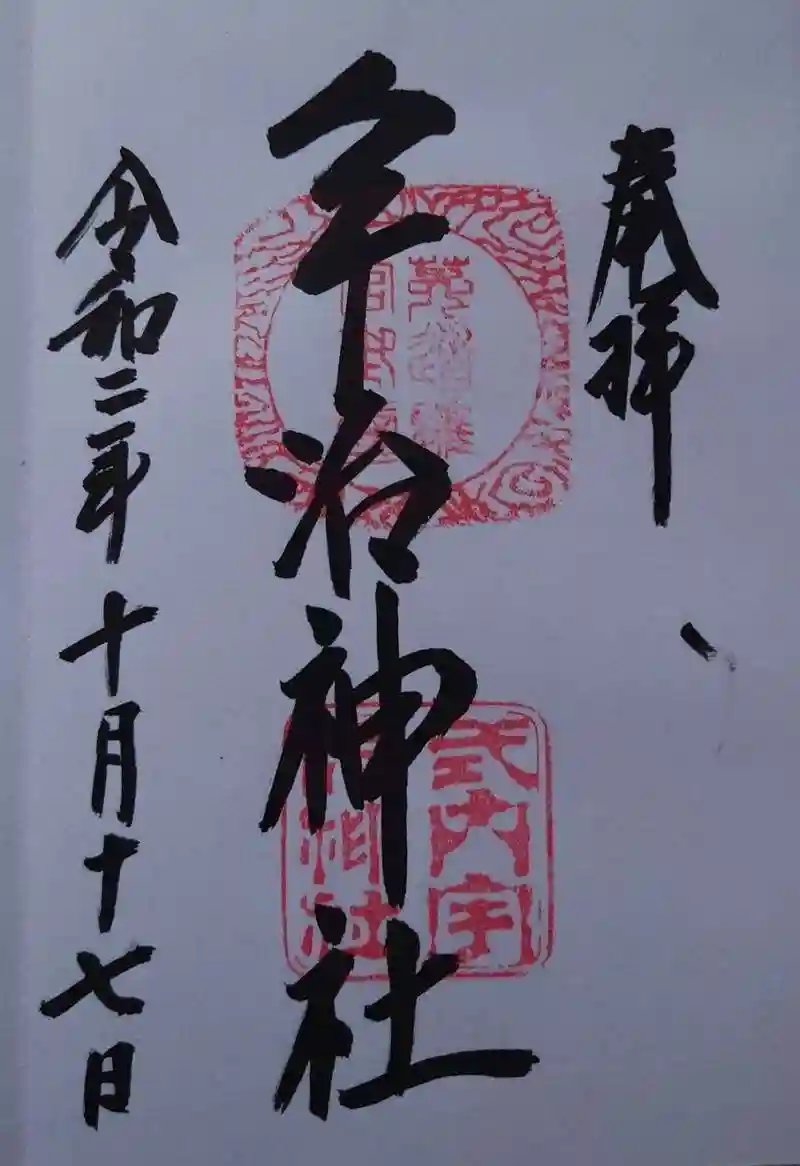 奉拝
宇治神社
式内宇
治神社
令和二年十月十七日